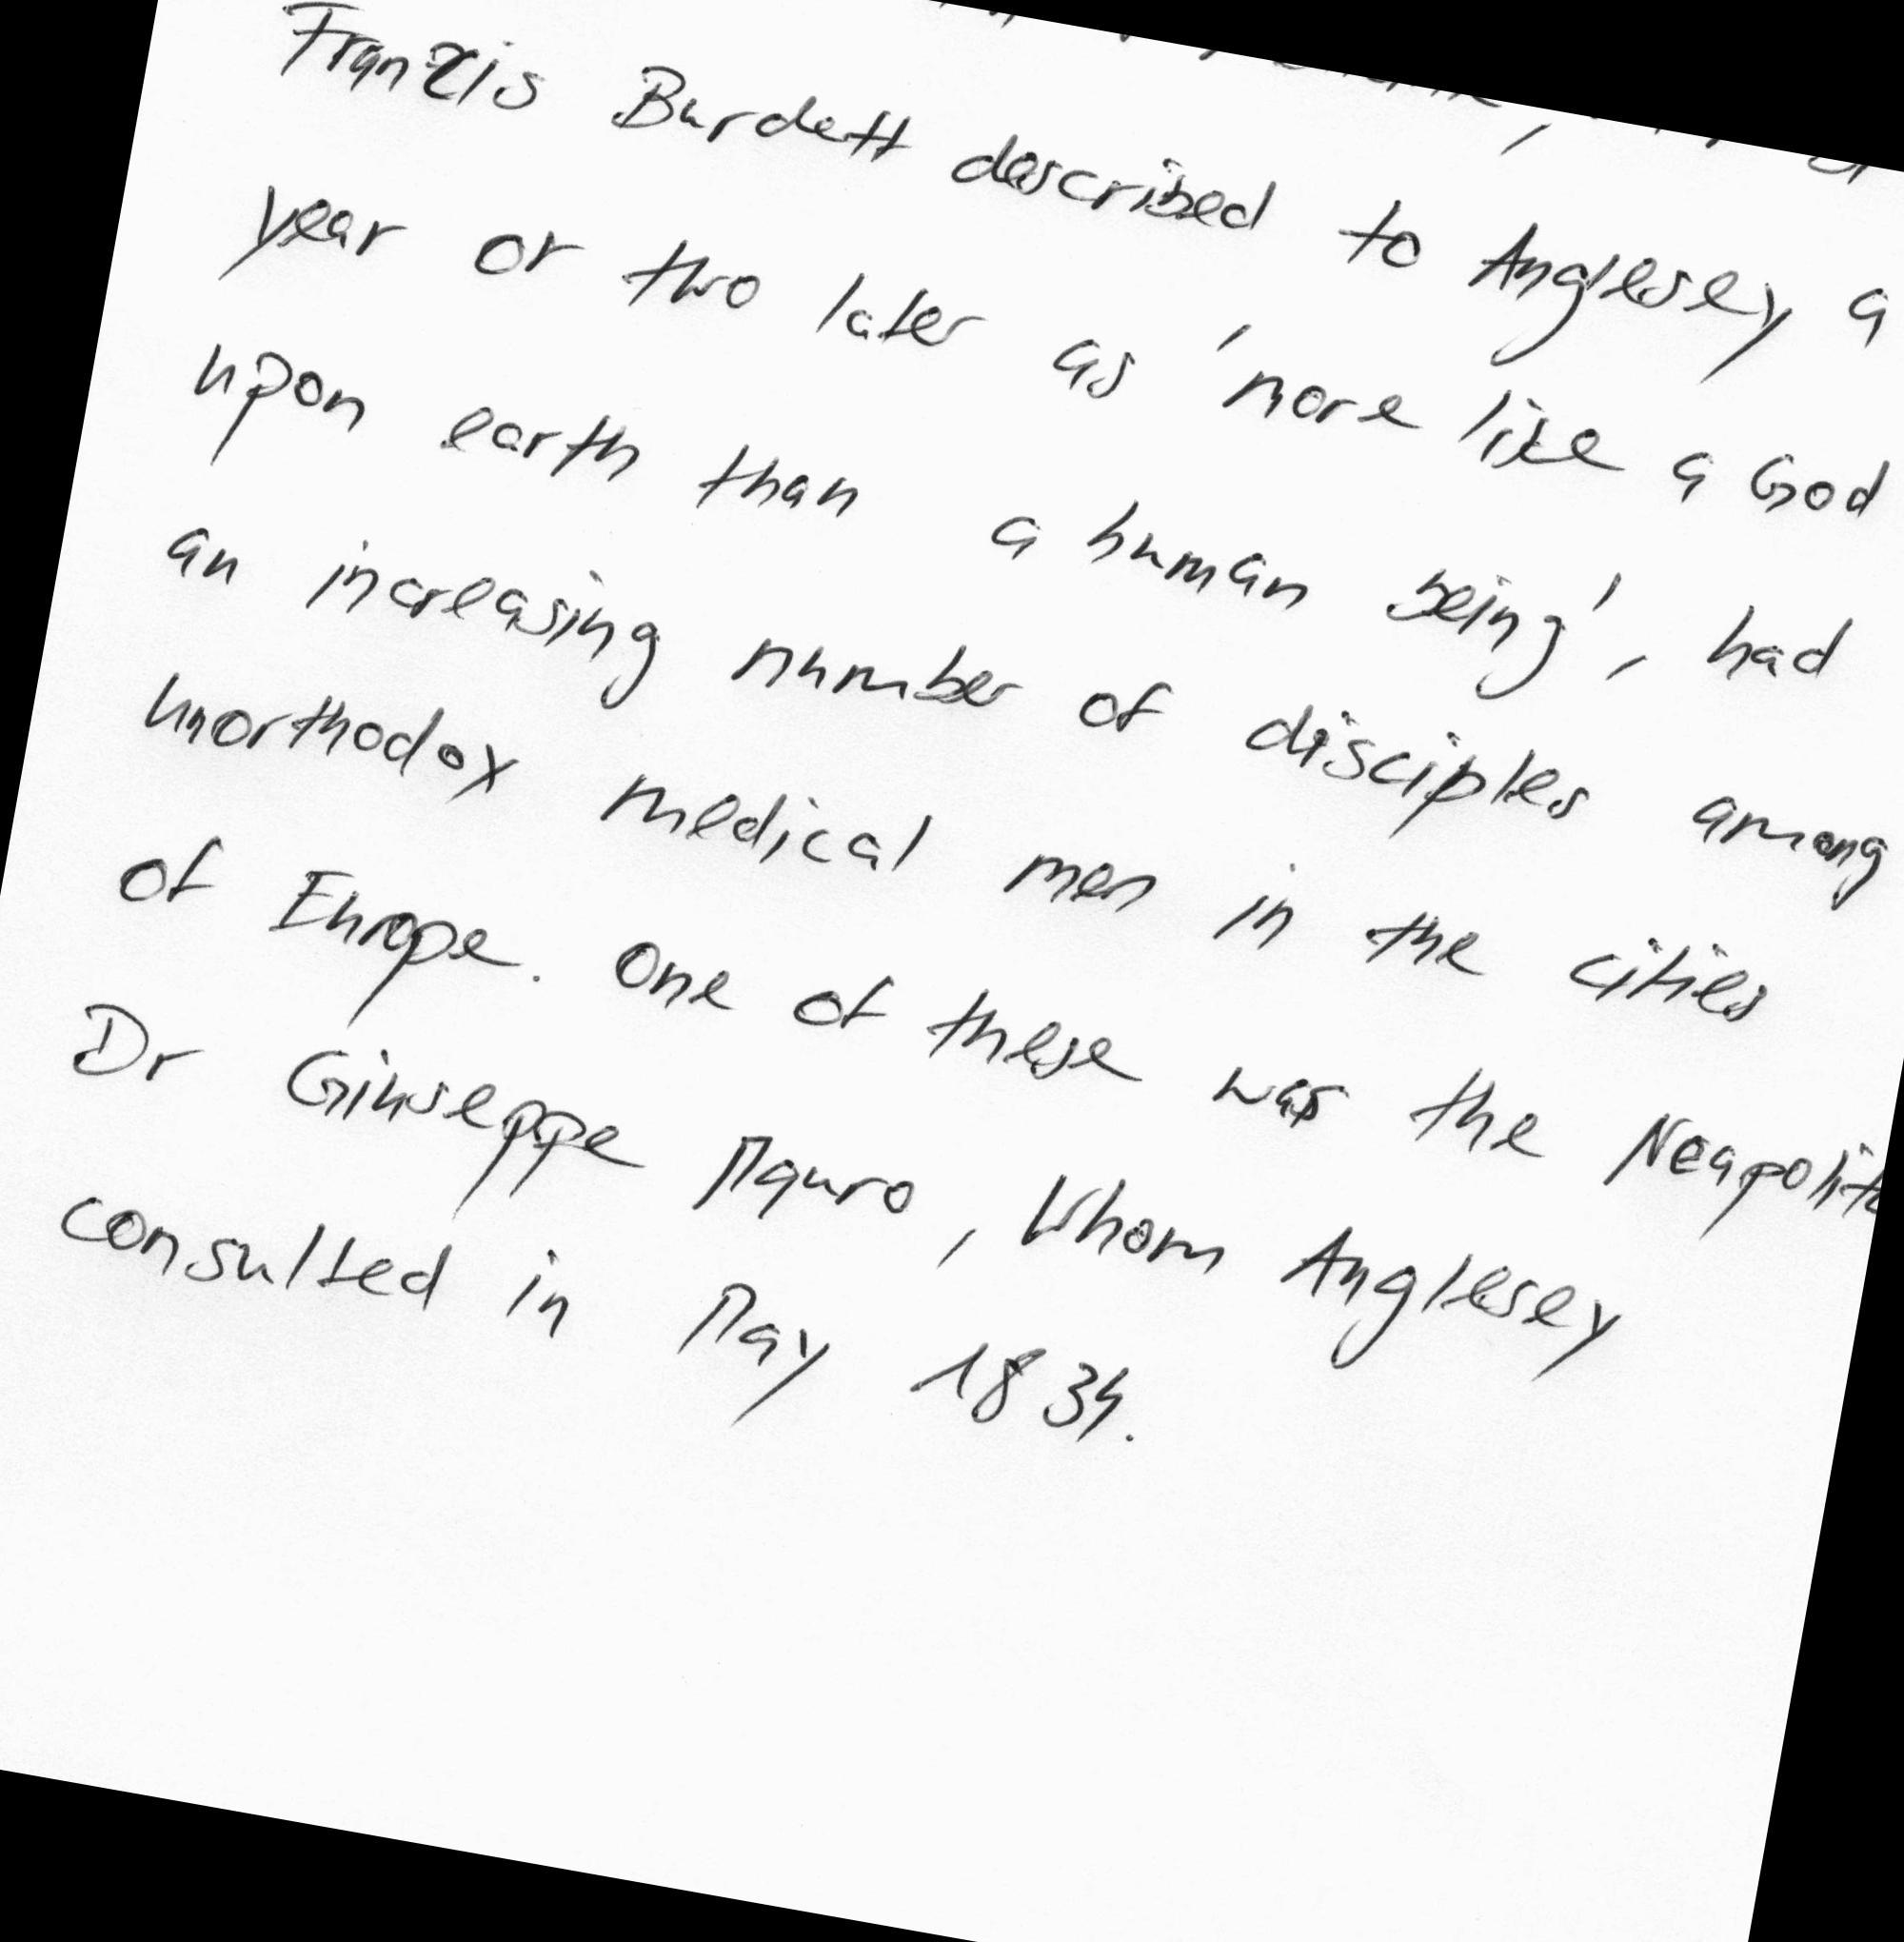 Francis Burdett described to Anglesey a
year or two later as 'more like a God
upon earth than a human being', had
an increasing number of disciples among
unorthodox medical men in the cities
of Europe. One of these was the Neapolit
Dr Giuseppe Mauro, Whom Anglesey
consulted in May 1834.